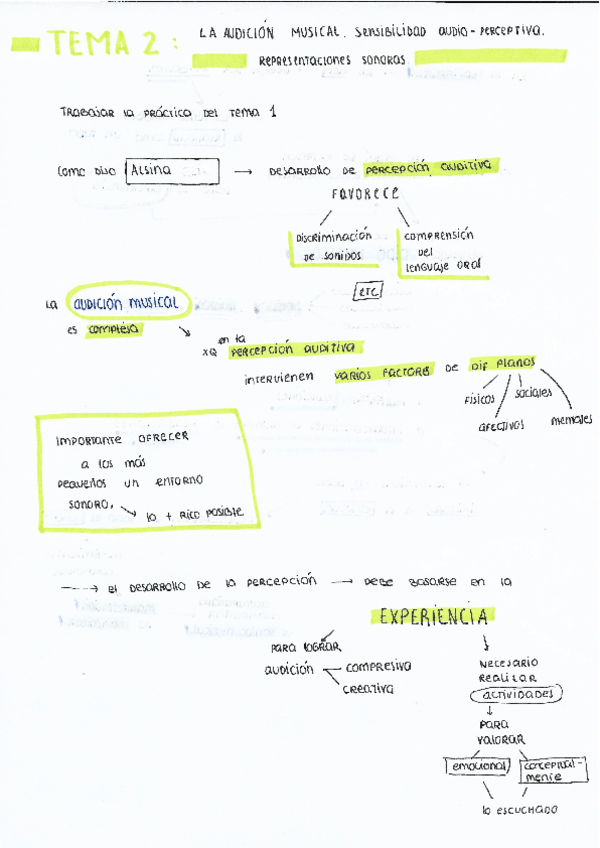 TEMA 2: LA AUDICIÓN MUSICAL. SENSIBILIDAD AUDIO-PERCEPTIVA.
REPRESENTACIONES SONORAS.
TRABAJAR LA PRÁCTICA DEL TEMA 1
COMO DIJO ALSINA → DESARROLLO DE PERCEPCIÓN AUDITIVA
FAVORECE
DISCRIMINACIÓN
DE SONIDOS
COMPRENSIÓN
DEL
LENGUAJE ORAL
ETC
LA AUDICIÓN MUSICAL
ES COMPLEJA
XQ en la PERCEPCIÓN AUDITIVA
INTERVIENEN VARIOS FACTORES DE DIF PLANOS
FÍSICOS
SOCIALES
AFECTIVOS
MENTALES
IMPORTANTE OFRECER
A LOS MÁS
PEQUEÑOS UN ENTORNO
SONORO,
LO + RICO POSIBLE
→ EL DESARROLLO DE LA PERCEPCIÓN → DEBE BASARSE EN LA
EXPERIENCIA
PARA LOGRAR
AUDICIÓN
COMPRESIVA
CREATIVA
NECESARIO
REALIZAR
ACTIVIDADES
PARA
VALORAR
EMOCIONAL
CONCEPTUAL-
MENTE
LO ESCUCHADO